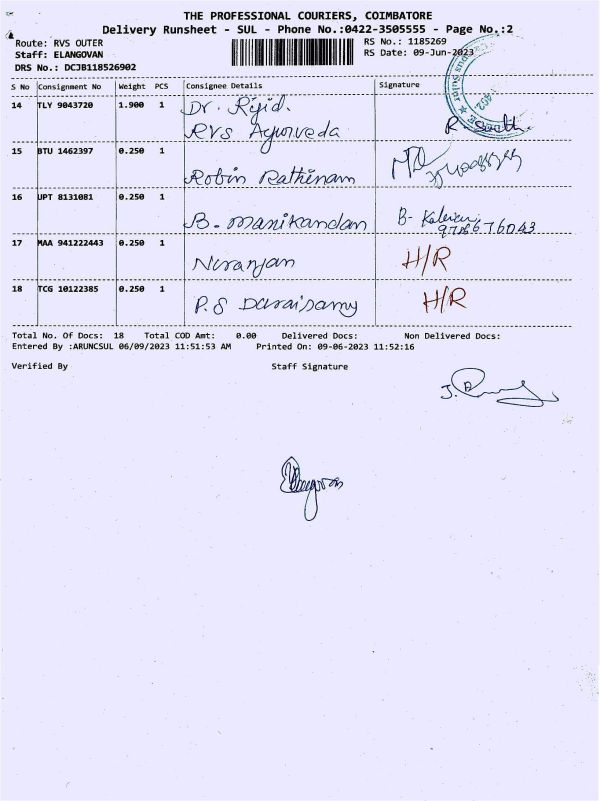 THE PROFESSIONAL COURIERS, COIMBATORE
Delivery Runsheet - SUL - Phone No.:0422-3505555 - Page No.:2
Route: RVS OUTER
RS No.: 1185269
Staff: ELANGOVAN
RS Date: 09-Jun-2023
DRS No.: DCJB118526902
S No Consignment No Weight PCS Consignee Details Signature
14 TLY 9043720 1.900 1 Dr. Rijid.
RVS Ayurveda
15 BTU 1462397 0.250 1
Robin Rathinam
16 UPT 8131081 0.250 1
B. Manikandan B-
17 MAA 941222443 0.250 1
Niranjan H/R
18 TCG 10122385 0.250 1 H/R
P.S Duraisamy
Total No. Of Docs: 18 Total COD Amt: 0.00 Delivered Docs: Non Delivered Docs:
Entered By :ARUNCSUL 06/09/2023 11:51:53 AM Printed On: 09-06-2023 11:52:16
Verified By Staff Signature
Elangovan